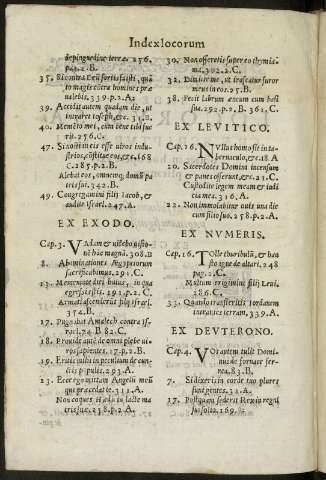 Index locorum
depinguedine terræ. 256.
pag. 2. B.
37. Si contra Deũ fortis fuisti, quã
to magis contra homines præ
ualebis. 339. p. 2. A.
39. Accidit autem quadam die, ut
intraret Ioseph, &c. 31. B.
40. Memẽto mei, cum bene tibi fue
rit. 256. C.
47. Si nosti in eis esse uiros indu
strios, cõstitue eos, &c. 168
C. 287. p. 2. B.
Alebat eos, omnemq; domũ pa
tris sui. 342. B.
49. Congregamini filij Iacob, &
audite Israel. 247. A.
EX EXODO.
Cap. 3. Vadam & uidebo uisio-
nẽ hãc magnã. 308. B
8. Abominationes Ægyptiorum
sacrificabimus. 291. C.
13. Mementote diei huius, in qua
egressi estis. 291. p. 2. C.
Armati ascenderũt filij Israel.
374. B.
17. Pugnabat Amalech contra Is-
rael. 74. B. 82. C.
18. Prouide autẽ de omni plebe ui-
ros sapientes. 17. p. 2. B.
19. Eritis mihi in peculium de cun-
ctis populis. 293. A.
23. Ecce ego mittam Angelũ meũ
qui præcedat te. 312. A.
Non coques hœdũ in lacte ma
tris suæ. 238. p. 2. A.
30. Non offeretis super eo thymia-
ma. 302. 2. C.
32. Dimitte me, ut irascatur furor
meus in eos. 27. B.
38. Fecit labrum æneum cum basi
sua. 292. p. 2. B. 361. C.
EX LEVITICO.
Cap. 16. Nullus homo sit in ta-
bernaculo, &c. 18. A
20. Sacerdotes Domini incensum
& panes offerunt, &c. 21. C.
Custodite legem meam & iudi
cia mea. 316. A.
22. Non immolabitur outis una die
cum filio suo. 258. p. 2. A.
EX NVMERIS.
Cap. 16. Tolle thuribulũ, & hau
sto igne de altari. 248
pag. 2. C.
Multum erigimini filij Leui.
386. C.
33. Quando transieritis Iordanem
intrantes terram. 339. A.
EX DEVTERONO.
Cap. 4. Vos autem tulit Domi-
nus de fornace fer-
rea. 83. B.
7. Si dixeris in corde tuo plures
sunt gentes. 32. A.
17. Postquam sederit Rex in regni
sui solio. 169.